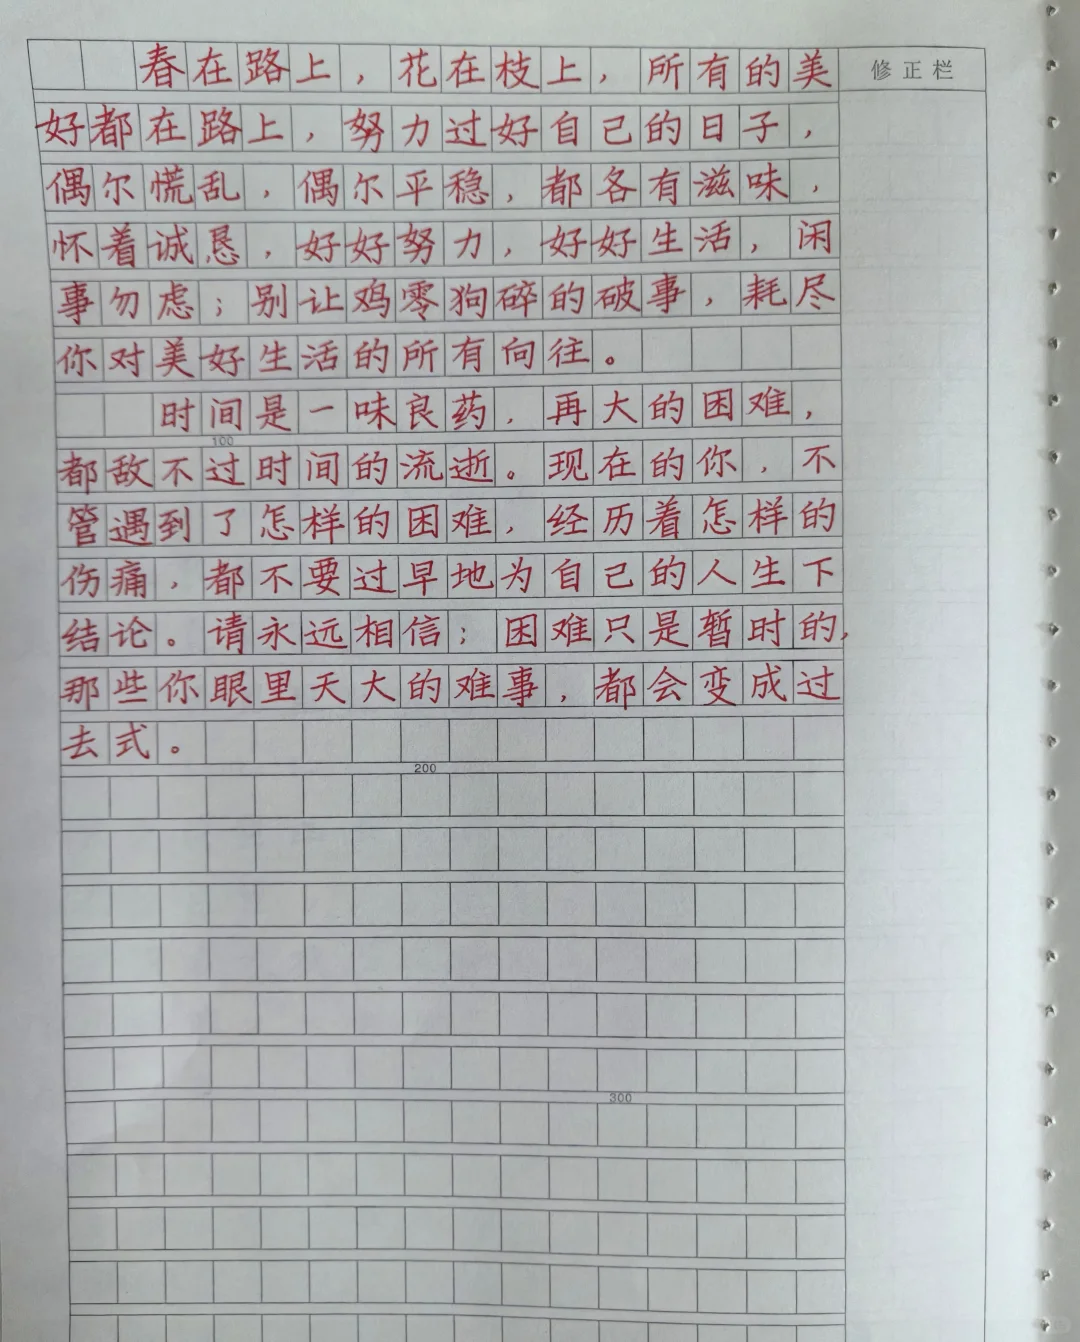 春在路上，花在枝上，所有的美
修正栏
好都在路上，努力过好自己的日子，
偶尔慌乱，偶尔平稳，都各有滋味，
怀着诚恳，好好努力，好好生活，闲
事勿虑；别让鸡零狗碎的破事，耗尽
你对美好生活的所有向往。
时间是一味良药，再大的困难，
100
都敌不过时间的流逝。现在的你，不
管遇到了怎样的困难，经历着怎样的
伤痛，都不要过早地为自己的人生下
结论。请永远相信；困难只是暂时的，
那些你眼里天大的难事，都会变成过
去式。
200
300